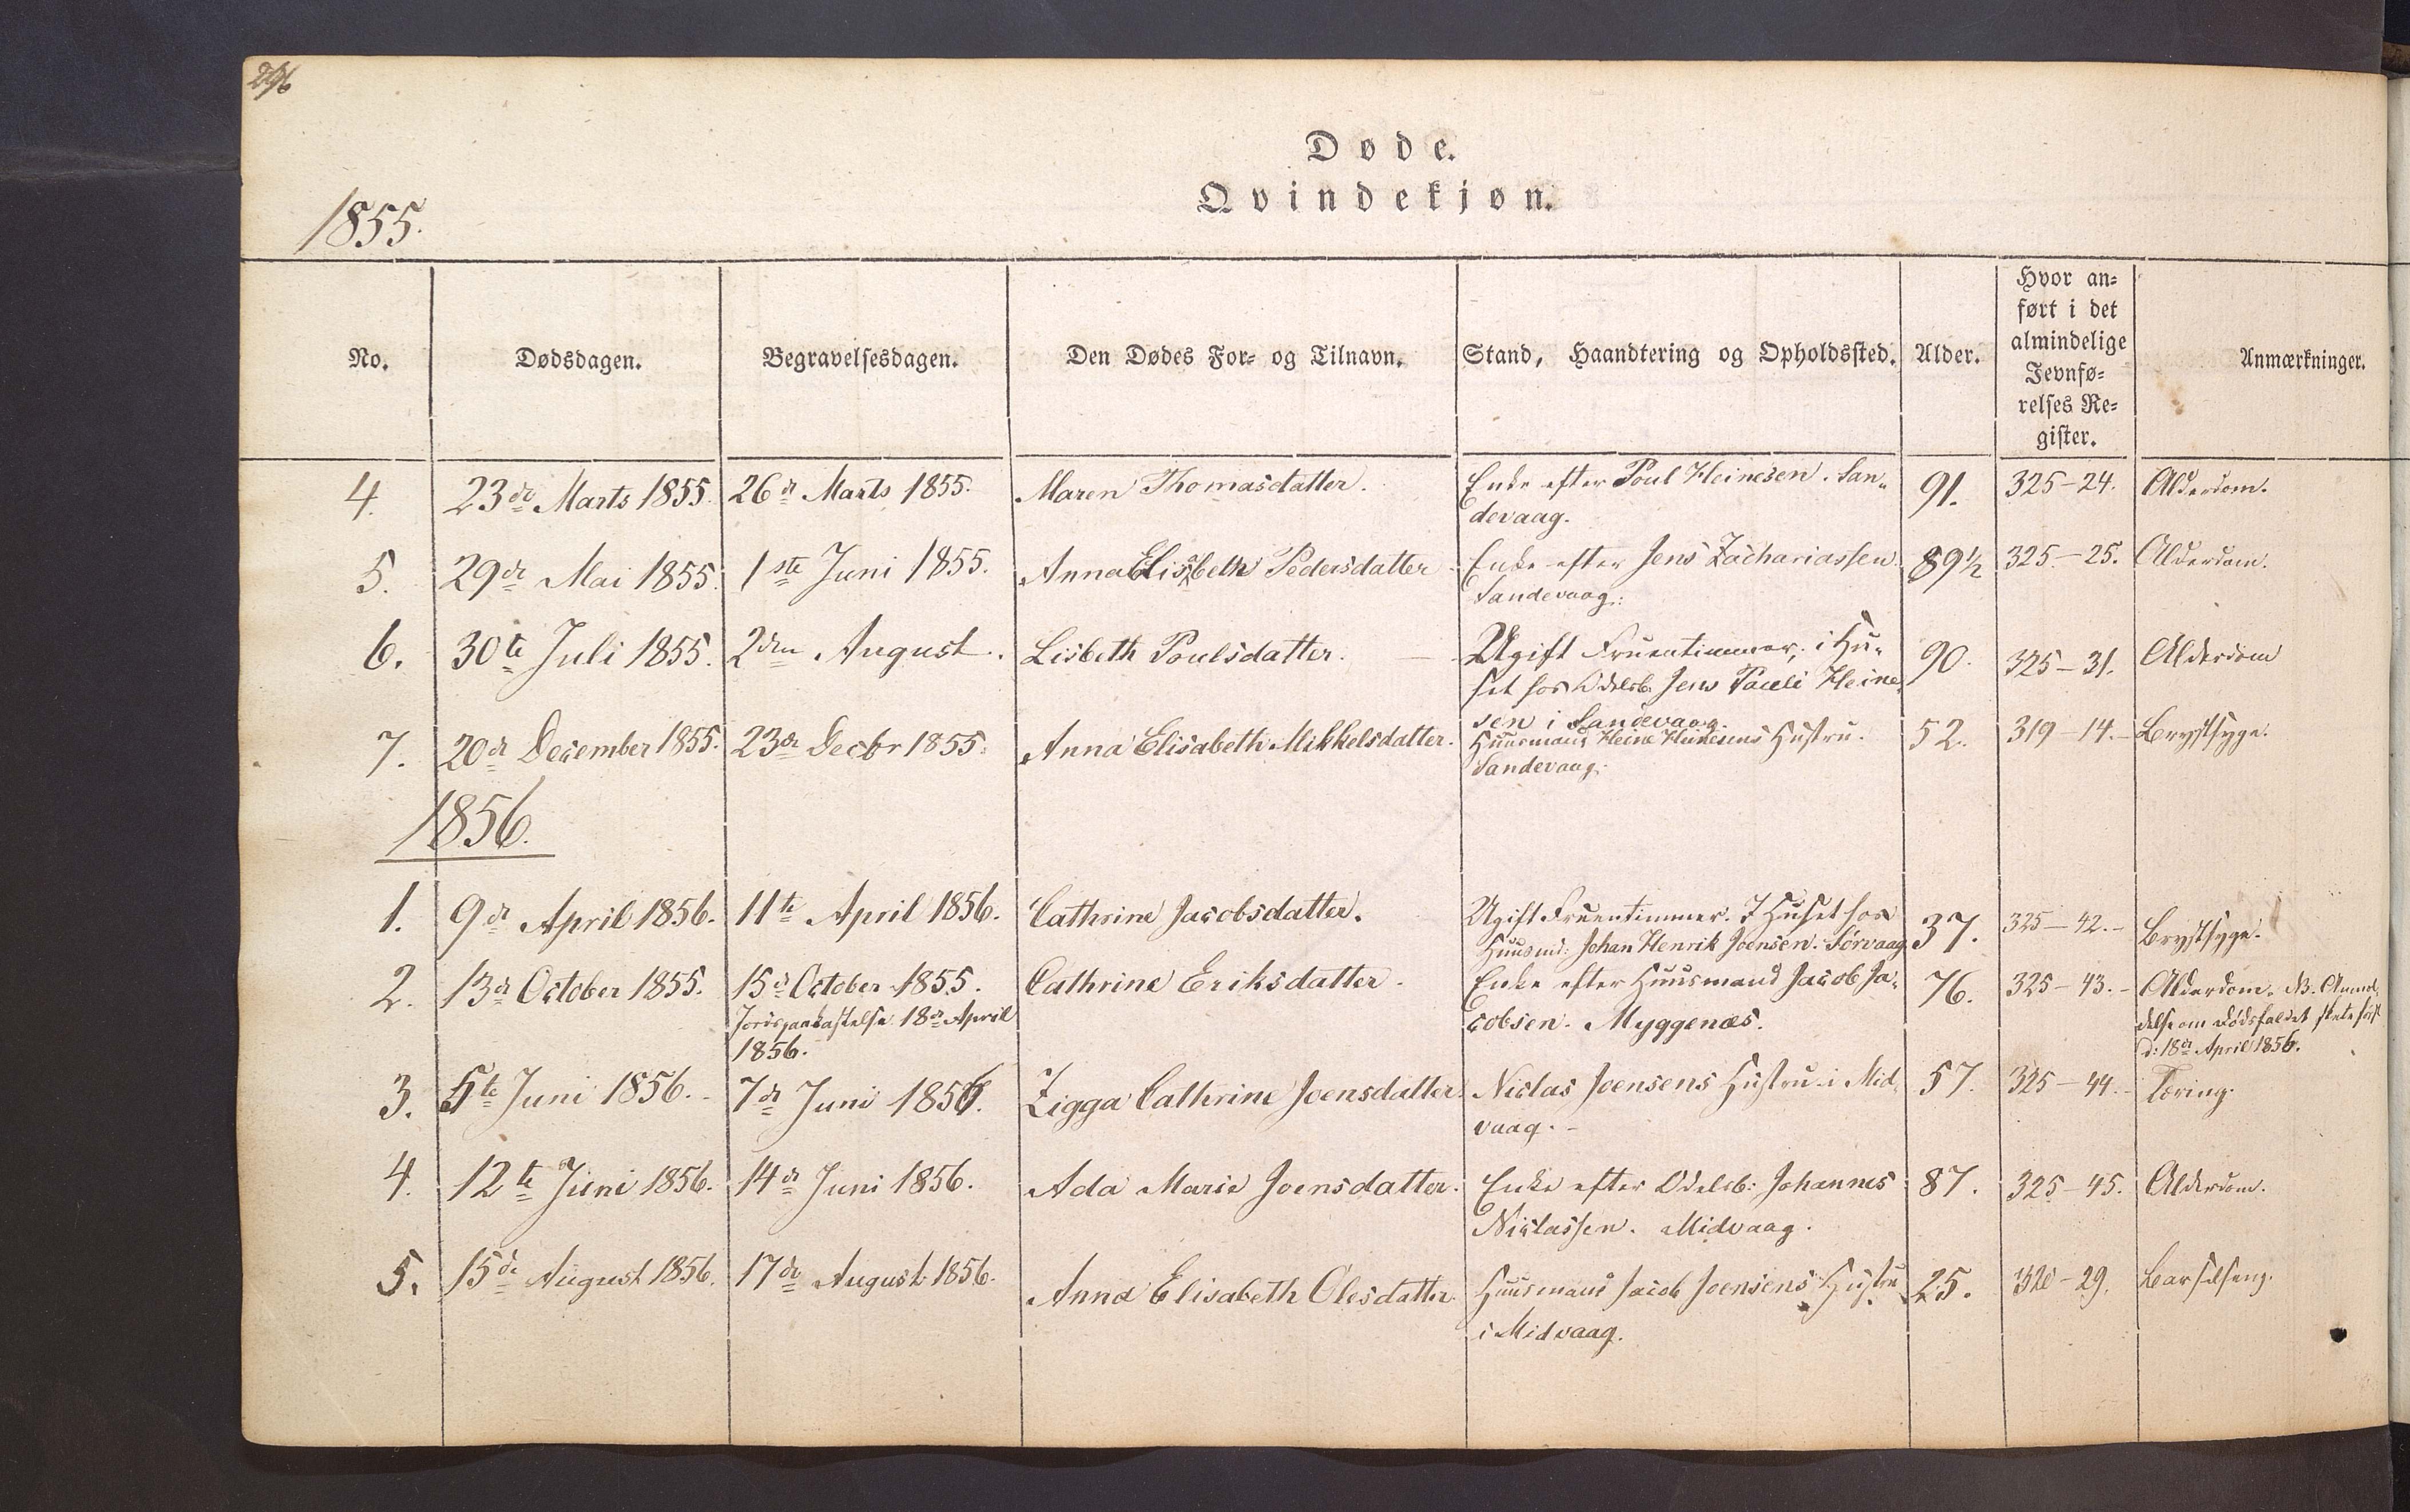 296
Døde.
Qvindekjøn.
1855.
No. Dødsdagen. Begravelsesdagen. Den Dødes For- og Tilnavn. Stand, Haandtering og Opholdssted. Alder. Hvor an=
ført i det
almindelige
Jevnfø=
relses Re=
gister. Anmærkninger.
4. 23de Marts 1855. 26de Marts 1855. Maren Thomasdatter. Enke efter Poul Heinesen. San= 91. 325-24. Alderdom.
devaag.
5. 29de Mai 1855. 1ste Juni 1855. Anna Elisabeth Pedersdatter Enke efter Jens Zachariassen 89½ 325-25. Alderdom.
Sandevaag.
6. 30te Juli 1855. 2den August. Lisbeth Poulsdatter. Ugift Fruentimmer, i Hu= 90. 325-31. Alderdom
set hos Odelsb. Jens Pauli Heine=
sen i Sandevaag.
7. 20de December 1855. 23de Decbr 1855. Anna Elisabeth Mikkelsdatter. Huusmand Heine Heinesens Hustru. 52. 319-14. Brystsyge.
Sandevaag.
1856.
1. 9de April 1856. 11te April 1856. Cathrine Jacobsdatter. Ugift Fruentimmer. I Huset hos 37. 325-42.- Brystsyge.
Huusmd: Johan Henrik Joensen. Sørvaag
2. 13de October 1855. 15de October 1855. Cathrine Eriksdatter. Enke efter Huusmand Jacob Ja= 76. 325-43.- Alderdom. NB. Anmel=
Jordspaakastelse 18de April cobsen. Myggenæs. delse om Dødsfaldet skete først
1856. d: 18de April 1856.
3. 5te Juni 1856.- 7de Juni 1856. Zigga Cathrine Joensdatter. Niclas Joensens Hustru i Mid= 57. 325-44.- Tæring.
vaag.-
4. 12te Juni 1856. 14de Juni 1856. Ada Marie Joensdatter. Enke efter Odelsb: Johannes 87. 325-45. Alderdom.
Niclassen. Midvaag.
5. 15de August 1856. 17de August 1856. Anna Elisabeth Olesdatter. Huusmand Jacob Joensens Hustru 25. 320-29. Barselseng.
i Midvaag.